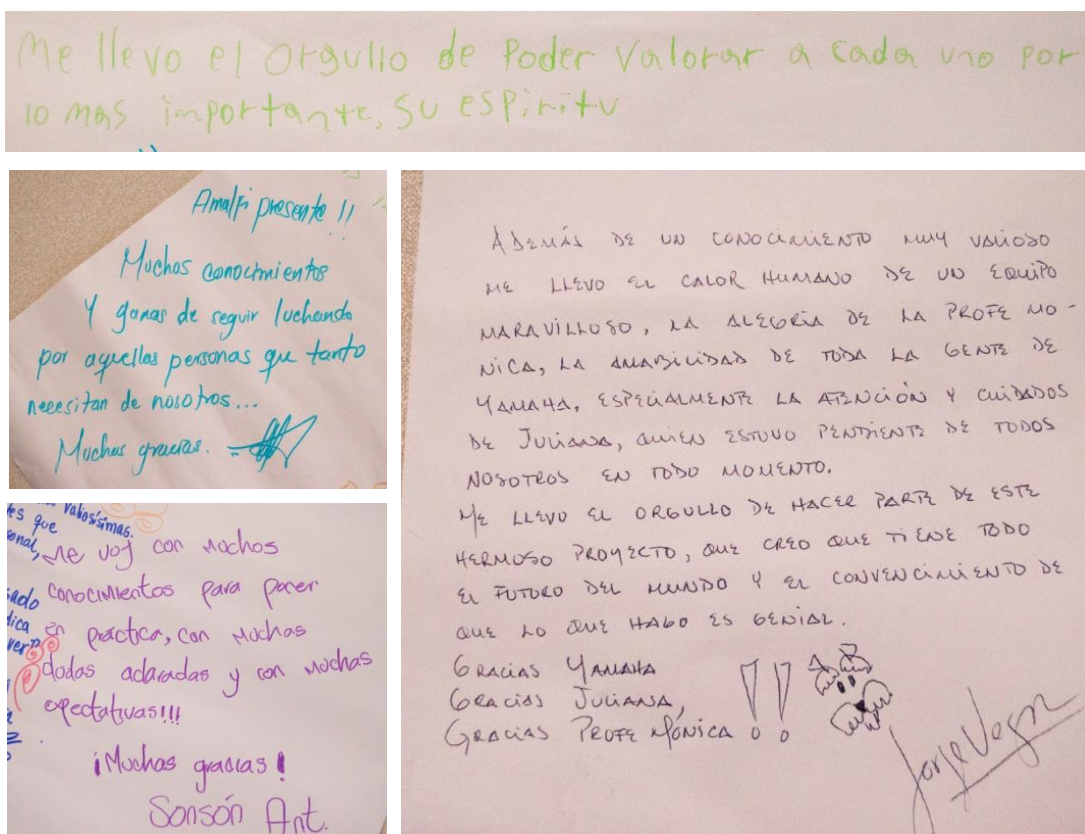 Me llevo el Orgullo de Poder Valorar a cada uno por
lo mas importante, su espiritu
Amalfi presente !!
Muchos conocimientos
Y ganas de seguir luchando
por aquellas personas que tanto
necesitan de nosotros...
Muchas gracias.
valiosísimas.
es que
onal,
Me voy con muchos
conocimientos para poner
en práctica, con muchas
dudas aclaradas y con muchas
expectativas!!!
¡Muchas gracias!
Sonsón Ant.
ADEMÁS DE UN CONOCIMIENTO MUY VALIOSO
ME LLEVO EL CALOR HUMANO DE UN EQUIPO
MARAVILLOSO, LA ALEGRÍA DE LA PROFE MO-
NICA, LA AMABILIDAD DE TODA LA GENTE DE
YAMAHA, ESPECIALMENTE LA ATENCIÓN Y CUIDADOS
DE JULIANA, QUIEN ESTUVO PENDIENTE DE TODOS
NOSOTROS EN TODO MOMENTO.
ME LLEVO EL ORGULLO DE HACER PARTE DE ESTE
HERMOSO PROYECTO, QUE CREO QUE TIENE TODO
EL FUTURO DEL MUNDO Y EL CONVENCIMIENTO DE
QUE LO QUE HAGO ES GENIAL.
GRACIAS YAMAHA
GRACIAS JULIANA,
GRACIAS PROFE MÓNICA !!
Jorge Vega